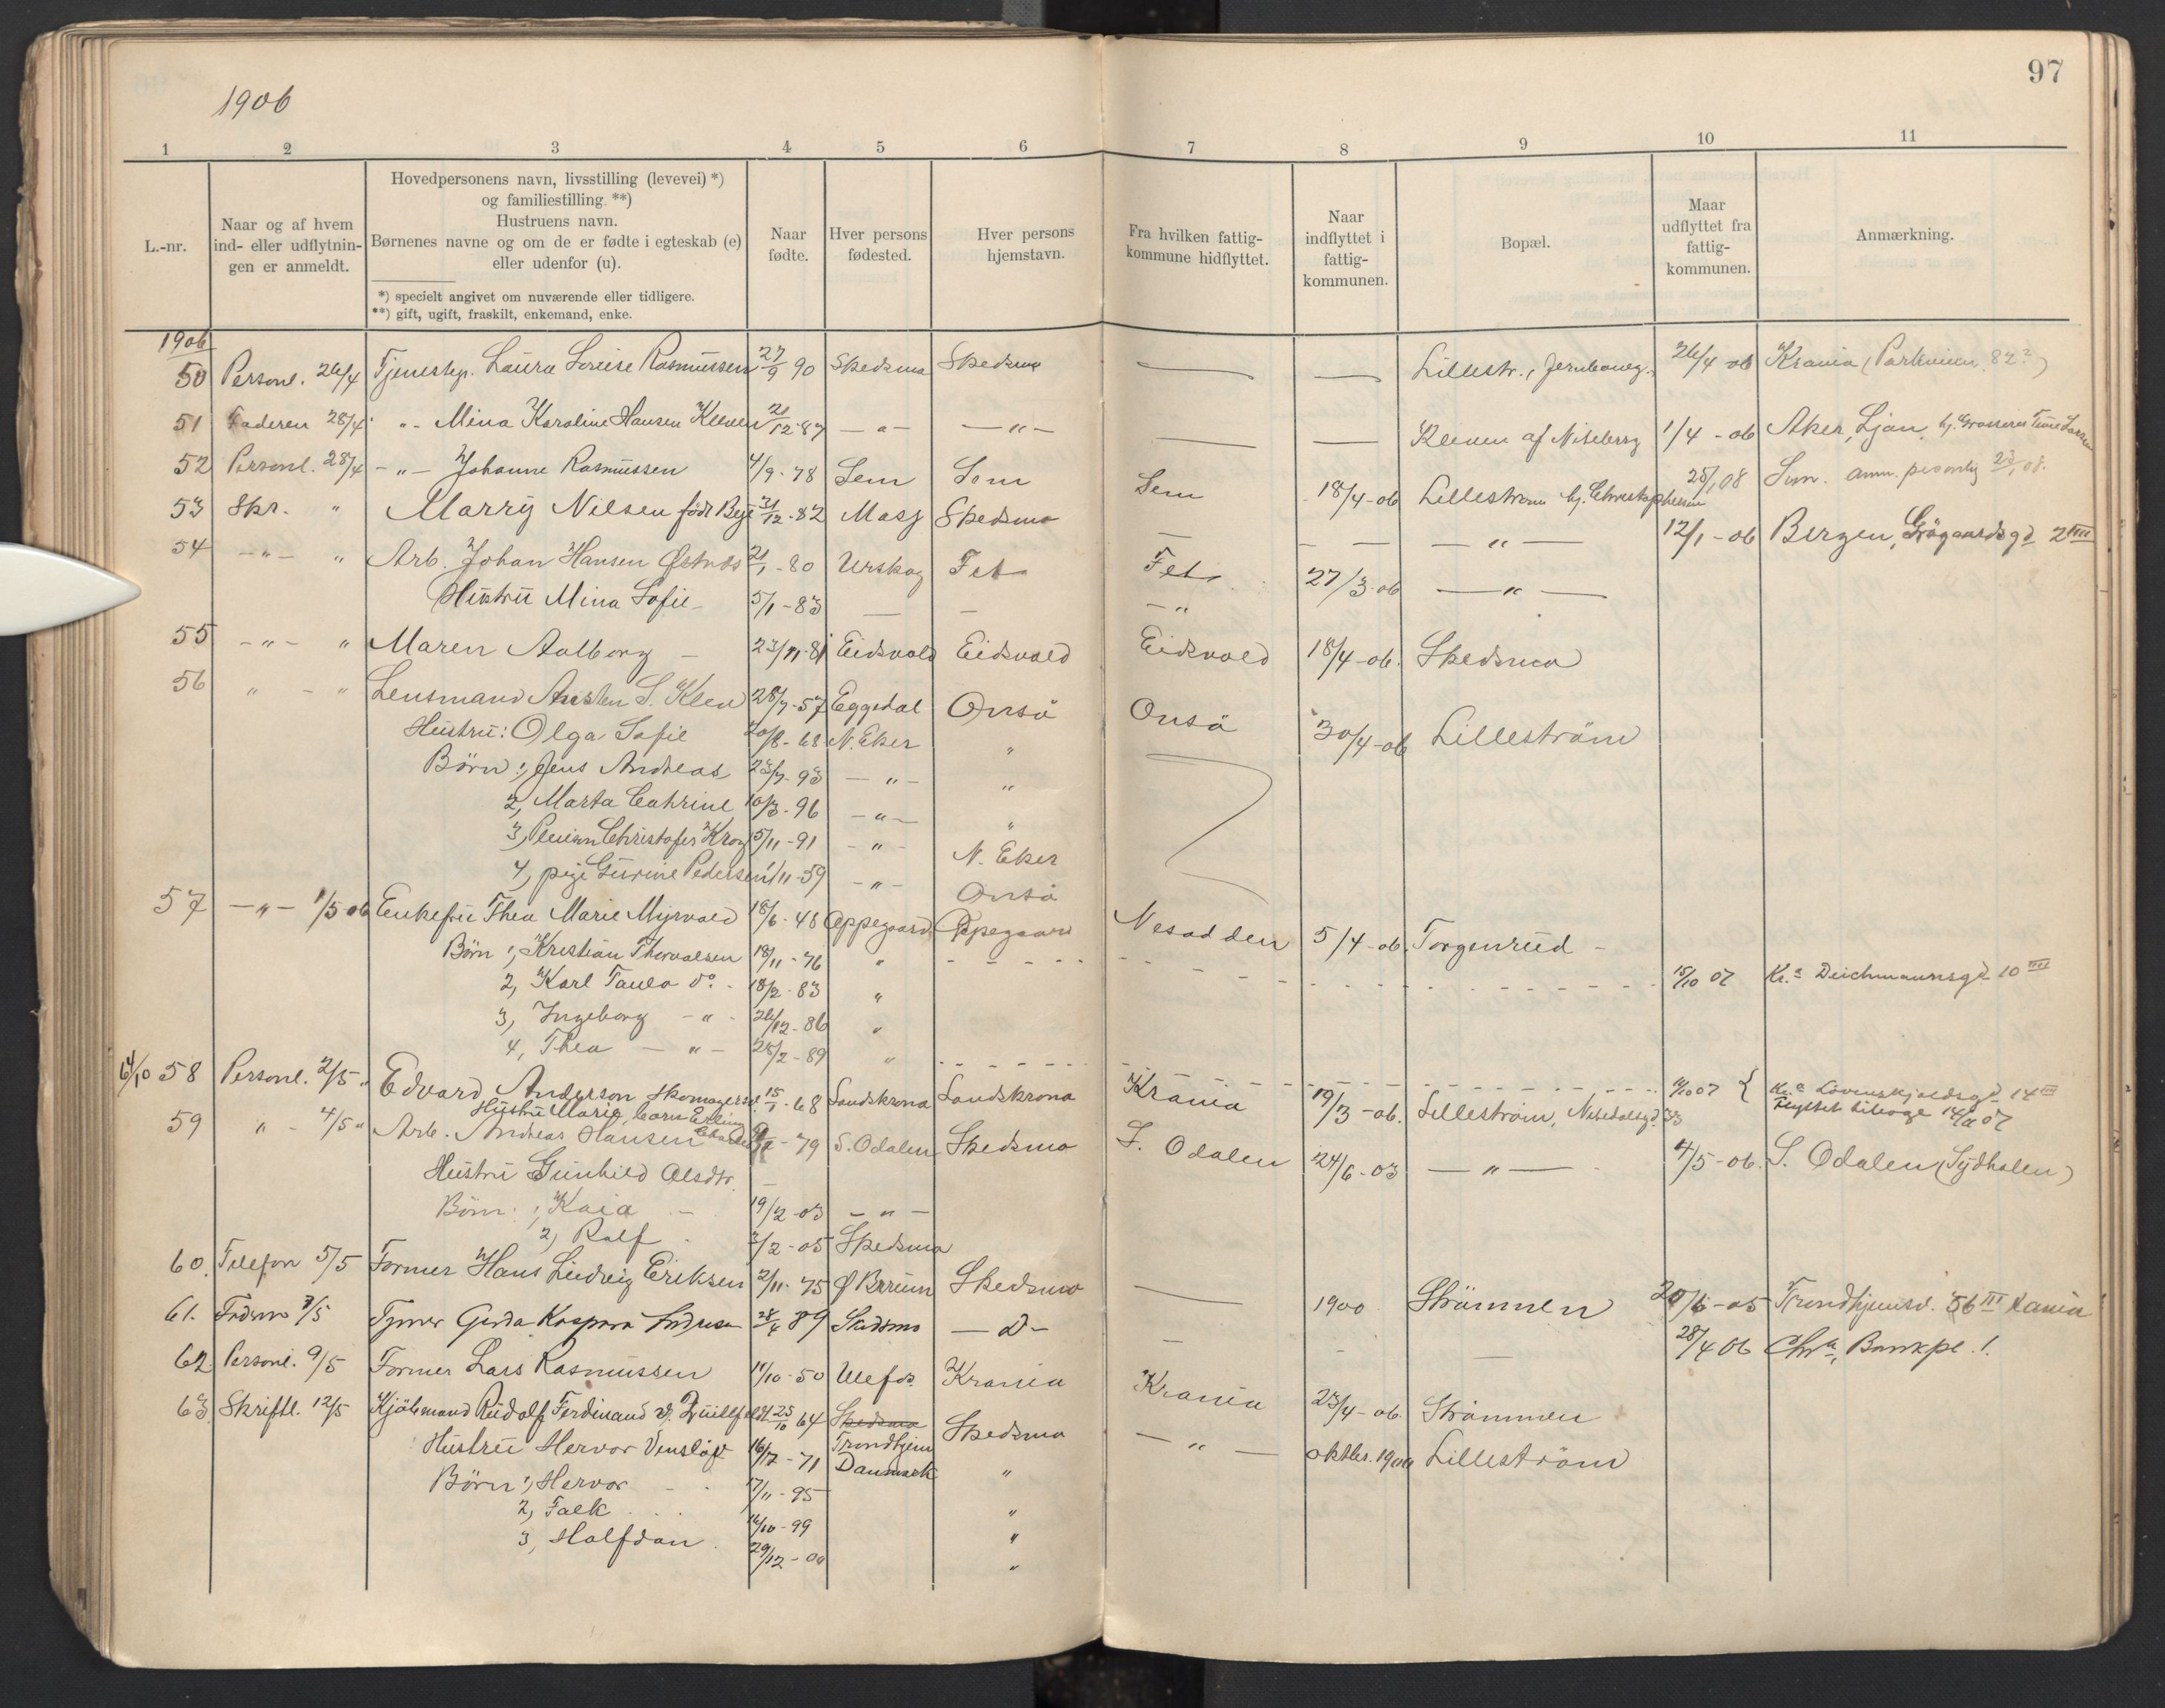 97
1906
1 2 3 4 5 6 7 8 9 10 11
L.-nr.
Naar og af hvem
ind- eller udflytnin-
gen er anmeldt.
Hovedpersonens navn, livsstilling (levevei) *)
og familiestilling. **)
Hustruens navn.
Børnenes navne og om de er fødte i egteskab (e)
eller udenfor (u).
*) specielt angivet om nuværende eller tidligere.
**) gift, ugift, fraskilt, enkemand, enke.
Naar
fødte.
Hver persons
fødested.
Hver persons
hjemstavn.
Fra hvilken fattig-
kommune hidflyttet.
Naar
indflyttet i
fattig-
kommunen.
Bopæl.
Maar
udflyttet fra
fattig-
kommunen.
Anmærkning.
1906
50 Personl. 26/4 Tjenestep. Laura Lovise Rasmussen 27/9 90 Skedsmo Skedsmo — — Lillestr., Jernbaneg. 26/4 06 Krania (Parkveien 82²)
51 Faderen 28/4 " - Mina Karoline Hansen Kleven 21/12-87 — " — — " — — — Kleven af Niteberg 1/4 - 06 Aker, Ljan, hj. Grosserer Larsen
52 Personl. 28/4 — " — Johanne Rasmussen 4/9-78 Sem Sem Sem 18/4-06 Lillestrøm hj. Christophersen 25/1 08 Sem. anm. personlig 23/1 08.
53 Skr. " Marry Nilsen født Beje 31/12-82 Masf Skedsmo — — — — " — 12/1-06 Bergen, 2 IIII
54 — " — " Arb. Johan Hansen Østnes 21/1-80 Urskog Fet Fet 27/3-06 — " —
Hustru Mina Sofie - 5/1-83 — — — "
55 — " — " Maren Aalborg - 23/11-81 Eidsvold Eidsvold Eidsvold 18/4-06. Skedsmo
56 " - " Lensmand Aasten S. Kleu 28/7-57 Eggedal Onsö Onsö 30/4-06 Lilleström
Hustru: Olga Sofie 20/8-68 N. Eker "
Börn: 1, Jens Andreas 23/7-93 — " — "
2, Marta Cathrine 10/3-96 — " — "
3, Pleiesøn Christofer Krog 5/11-91 — " — N. Eker
4, pige Gurine Pedersen 1/11-59 — " — Onsö
57 — " — 1/5 06 Enkefru Thea Marie Myrvold 18/6-48 Oppegaard Oppegaard Nesodden 5/4-06. Torgenrud -
Börn 1, Kristian Thorvalsen 18/11-76 "
2, Karl Taulo do. 18/2-83 " 15/10 07 Kr.a Deichmannsgd. 10 III
3, Ingeborg — " — 26/12-86 "
4, Thea — " — 25/2-89 " 14/10 07 { Kr.a Lövenskjoldsgd. 14 III
64/10 58 Personl. 2/5 " Edvard Anderson Skomagersv. 15/1-68 Landskrona Landskrona Krania 19/3-06. Lilleström, Nitedalsgd. 33 Flyttet tilbage 14/11 07
Hustru Marie, barn Elling
59 " - 4/5 " Arb. Andreas Hansen -79 S. Odalen Skedsmo S. Odalen 24/6-03 — " — 4/5-06. S. Odalen (Sydhalen)
Hustru Gunhild Olsdtr. —
Börn: 1, Kaia - 19/2-03 — " —
2, Ralf - 2/2-05 Skedsmo
60. Telefon 5/5 Former Hans Ludvig Eriksen 2/11-75 Ø Bærum Skedsmo — 1900 Strömmen 20/6-05 Trondhjemsv. 56 III Krania
61. Fadern 7/5 Tjener Gerda Kaspara Andresen 28/4 89 Skedsmo — D — — - — 28/4 06 Chr.a, Bankpl. 1.
62 Personl. 9/5 Former Lars Rasmussen 11/10-50 Ulefos Krania Krania 23/4-06. Strömmen
63. Skriftl. 12/5 Kjöbmand Rudolf Ferdinand v. Düllfeldt 25/10 64 Skedsmo Trondhjem Skedsmo — " — oktbr. 1900 Lilleström
Hustru Hervor Venslöf 16/7-71 Danmark "
Börn 1, Hervor - - 17/11-95 "
2, Falk . . . 16/10-99 "
3, Halfdan . 29/12-00 "